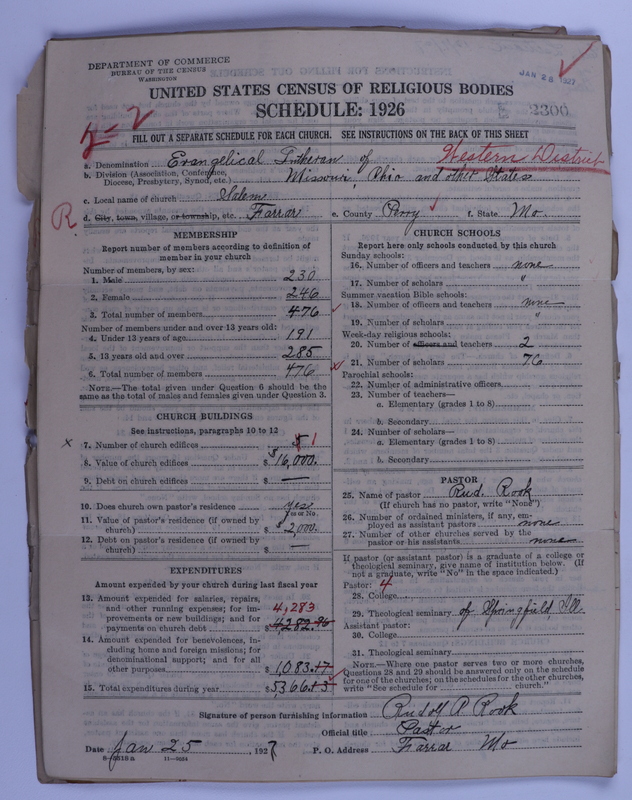 DEPARTMENT OF COMMERCE
BUREAU OF THE CENSUS
WASHINGTON
JAN 28 1927
UNITED STATES CENSUS OF RELIGIOUS BODIES
SCHEDULE: 1926
2300
FILL OUT A SEPARATE SCHEDULE FOR EACH CHURCH. SEE INSTRUCTIONS ON THE BACK OF THIS SHEET
a. Denomination Evangelical Lutheran of Western District
b. Division (Association, Conference, Diocese, Presbytery, Synod, etc.) Missouri, Ohio and other States
c. Local name of church Salem
R
d. City, town, village, or township, etc. Farrar e. County Perry f. State Mo.
MEMBERSHIP
Report number of members according to definition of
member in your church
Number of members, by sex:
1. Male 230
2. Female 246
3. Total number of members 476
Number of members under and over 13 years old:
4. Under 13 years of age 191
5. 13 years old and over 285
6. Total number of members 476
NOTE.—The total given under Question 6 should be
same as the total of males and females given under Question 3.
CHURCH BUILDINGS
See instructions, paragraphs 10 to 12
x 7. Number of church edifices 1
8. Value of church edifices $ $16,000.
9. Debt on church edifices $ —
10. Does church own pastor's residence yes
Yes or No
11. Value of pastor's residence (if owned by
church) $ $2,000.
12. Debt on pastor's residence (if owned by
church) $ —
EXPENDITURES
Amount expended by your church during last fiscal year
13. Amount expended for salaries, repairs,
and other running expenses; for im-
provements or new buildings; and for
payments on church debt $ 4,283
4,282.96
14. Amount expended for benevolences, in-
cluding home and foreign missions; for
denominational support; and for all
other purposes $ 1,083.17
15. Total expenditures during year $ 5366.13
CHURCH SCHOOLS
Report here only schools conducted by this church
Sunday schools:
16. Number of officers and teachers none
17. Number of scholars "
Summer vacation Bible schools:
18. Number of officers and teachers none
19. Number of scholars "
Week-day religious schools:
20. Number of officers and teachers 2
21. Number of scholars 76
Parochial schools:
22. Number of administrative officers
23. Number of teachers—
a. Elementary (grades 1 to 8)
b. Secondary
24. Number of scholars—
a. Elementary (grades 1 to 8)
b. Secondary
PASTOR
25. Name of pastor Rud. Rook
(If church has no pastor, write "None")
26. Number of ordained ministers, if any, em-
ployed as assistant pastors none
27. Number of other churches served by the
pastor or his assistants none
If pastor (or assistant pastor) is a graduate of a college or
theological seminary, give name of institution below. (If
not a graduate, write "No" in the space indicated.)
Pastor: 4
28. College
29. Theological seminary of Springfield, Ill.
Assistant pastor:
30. College
31. Theological seminary
NOTE.—Where one pastor serves two or more churches,
Questions 28 and 29 should be answered only on the schedule
for one of the churches; on the schedules for the other churches,
write "See schedule for church."
Signature of person furnishing information Rudolf A Rook
Official title Pastor
Date Jan 25 , 1927 P. O. Address Farrar Mo
8—5318a 11—9034